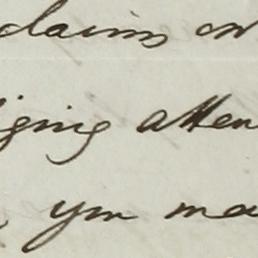 claims on
ging atten
you ma